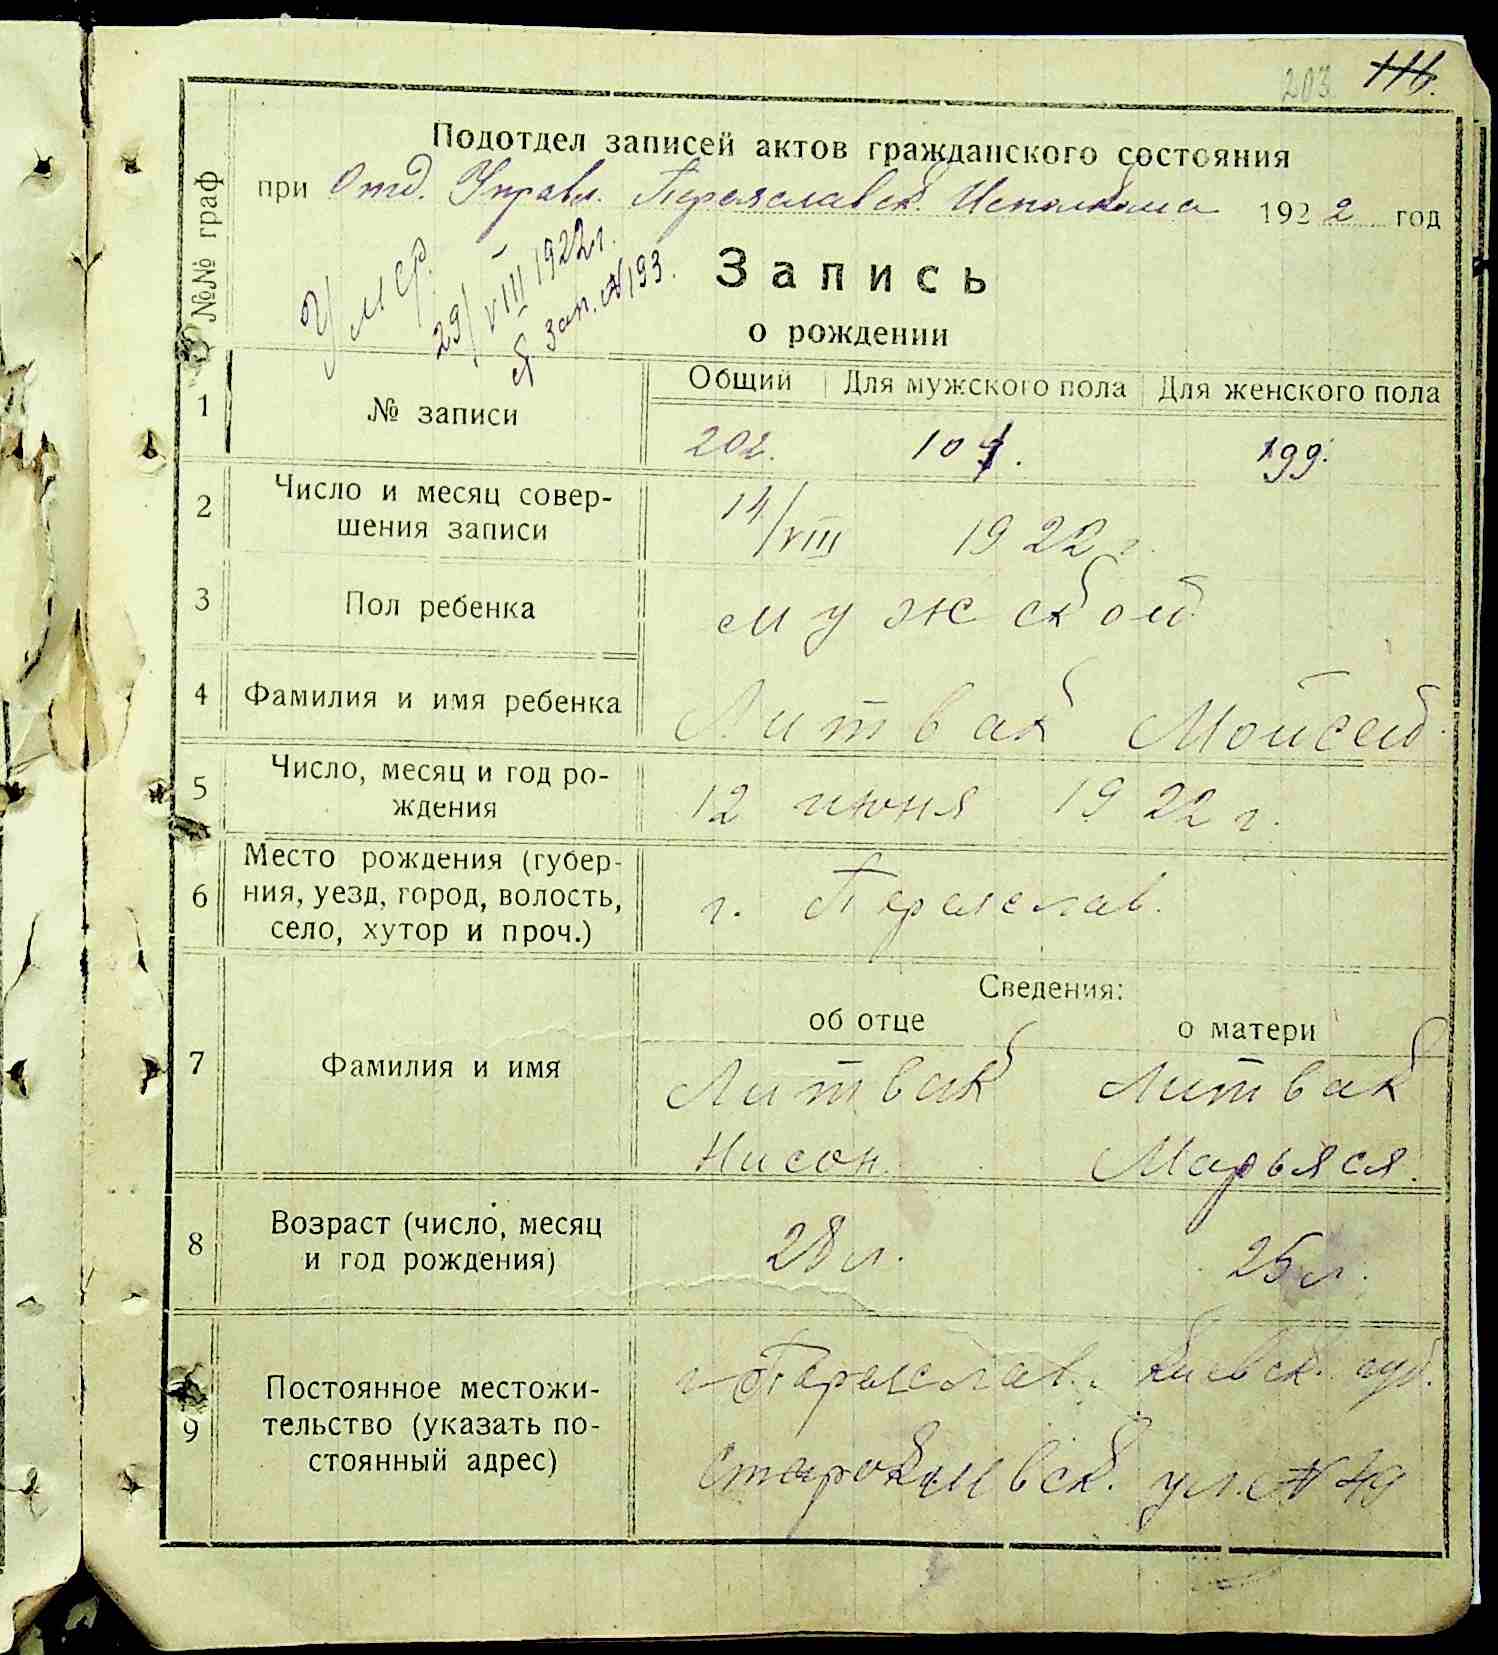 203 116.
Подотдел записей актов гражданского состояния
при Отд. Управл. Переяславск. Исполкома 1922 год
Умер.
29/VIII 1922 г.
Зап. №193.
Запись
о рождении
№№ граф
Общий Для мужского пола Для женского пола
1 № записи
202. 10 99.
2 Число и месяц совер-
шения записи
14/VIII 1922 г.
3 Пол ребенка мужской
4 Фамилия и имя ребенка Литвак Мойсей
5 Число, месяц и год ро-
ждения
12 июня 1922 г.
6 Место рождения (губер-
ния, уезд, город, волость,
село, хутор и проч.)
г. Переяслав.
Сведения:
об отце о матери
7 Фамилия и имя
Литвак Литвак
Нисон. Марьяся.
8 Возраст (число, месяц
и год рождения)
28 л. 25 л.
9 Постоянное местожи-
тельство (указать по-
стоянный адрес)
г. Переяслав. Киевск. губ.
Старокиевск. ул. № 49